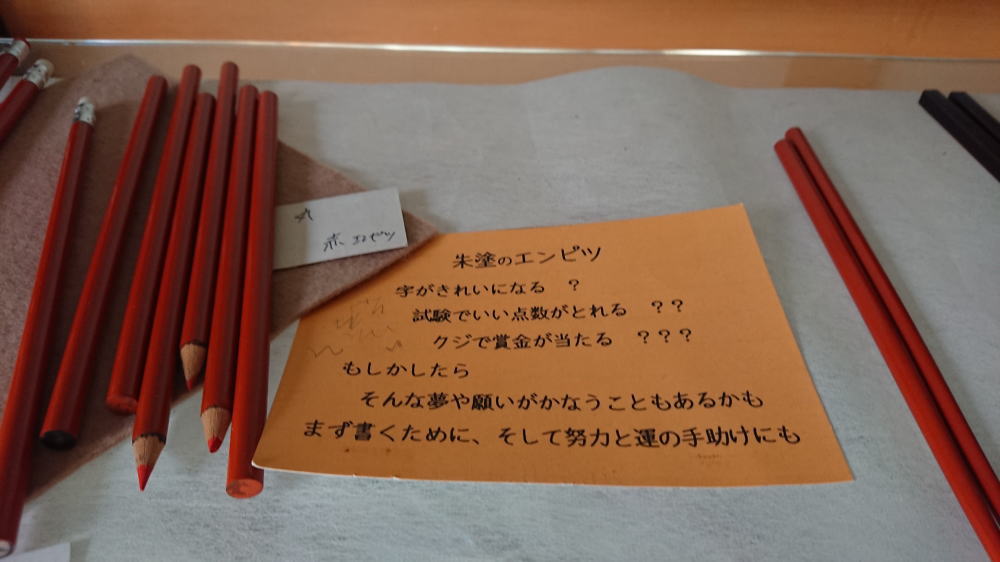 丸
赤エンピツ
朱塗のエンピツ
字がきれいになる ?
試験でいい点数がとれる ??
クジで賞金が当たる ???
もしかしたら
そんな夢や願いがかなうこともあるかも
まず書くために、そして努力と運の手助けにも